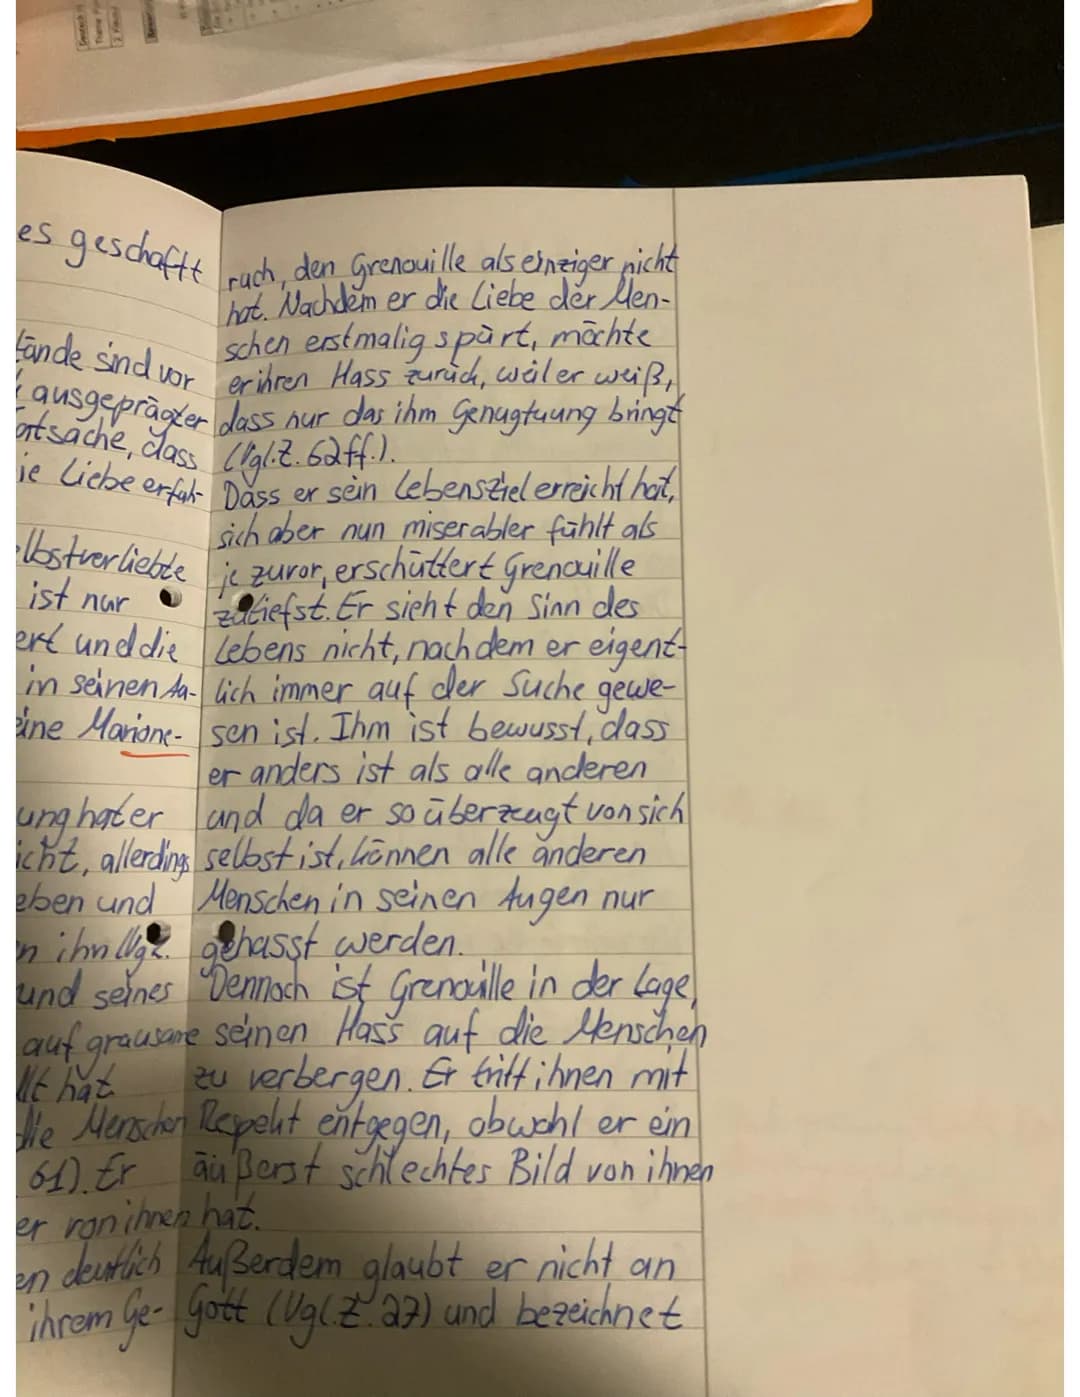 es geschafft
tände sind vor
ausgeprägter
atsache, dass
ie Liebe erfah-
elbstverliebte
ist nur
ert und die
in seinen Au-
eine Marione-
ung hat er
icht, allerdings
eben und
n ihn (Vgl.
und seines
auf grausame
llt hat
die Menschen
61). Er
er von ihnen
en deutlich
ihrem Ge-
ruch, den Grenouille als einziger nicht
hat. Nachdem er die Liebe der Men-
schen erstmalig spürt, möchte
er ihren Hass zurück, weil er weiß,
dass nur das ihm Genugtuung bringt
(Vgl. Z. 62ff.).
Dass er sein Lebensziel erreicht hat,
sich aber nun miserabler fühlt als
je zuvor, erschüttert Grenouille
zutiefst. Er sieht den Sinn des
Lebens nicht, nachdem er eigent-
lich immer auf der Suche gewe-
sen ist. Ihm ist bewusst, dass
er anders ist als alle anderen
und da er so überzeugt von sich
selbst ist, können alle anderen
Menschen in seinen Augen nur
gehasst werden.
Dennoch ist Grenouille in der Lage,
seinen Hass auf die Menschen
zu verbergen. Er tritt ihnen mit
Respekt entgegen, obwohl er ein
äußerst schlechtes Bild von ihnen
hat.
Außerdem glaubt er nicht an
Gott (Vgl. Z. 27) und bezeichnet